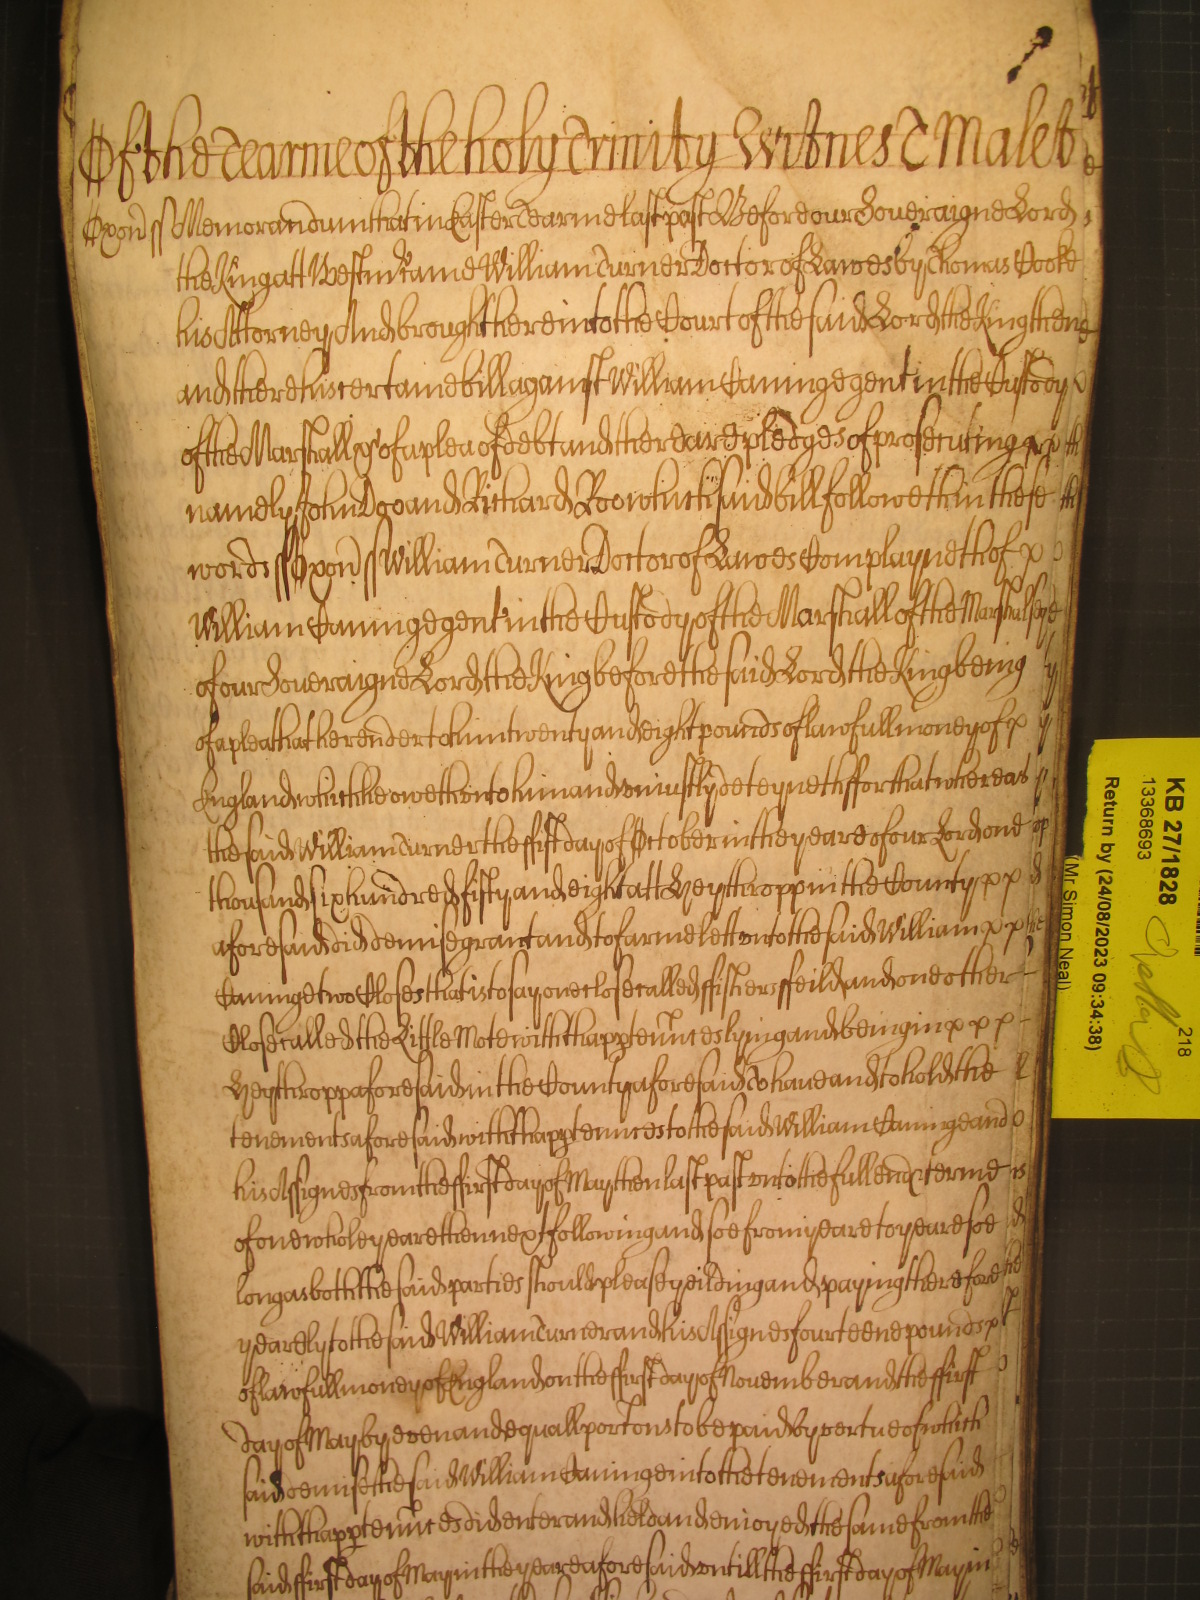 Of the Tearme of the holy Trinity Witnes T Malet
Oxon ss Memorandum that in Easter Tearme last past Before our Soveraigne Lord
the King att Westmr came William Turner Doctor of Lawes by Thomas Cooke
his Attorney And brought here into the Court of the said Lord the King then
and there his certaine bill against William Caninge gent in the Custody
of the Marshall &c of a plea of debt and there are pledges of prosecuting
namely John Doo and Richard Roo which said bill followeth in these
words ss Oxon ss William Turner Doctor of Lawes Complayneth of
William Caninge gent in the Custody of the Marshall of the Marshalsye
of our Soveraigne Lord the King before the said Lord the King being
of a plea that he render to him twenty and eight pounds of lawfull money of
England which he oweth unto him and uniustly deteyneth for that whereas
the said William Turner the first day of October in the yeare of our Lord one
thousand six hundred fifty and eight att Heythropp in the County
aforesaid did demise grant and to farme lett unto the said William
Caninge two Closes that is to say one close called ffishers ffeild and one other
Close called the Little Mote with thapptennces lying and being in
Heythropp aforesaid in the County aforesaid To have and to hold the
tenements aforesaid with thapptennces to the said William Caninge and
his Assignes from the ffirst day of May then last past unto the full end & terme
of one whole yeare then next following and soe from yeare to yeare soe
long as both the said parties should please yeilding and paying therefore
yearely to the said William Turner and his Assignes fourteene pounds
of lawfull money of England on the ffirst day of November and the ffirst
day of May by even and equall portons to be paid By vertue of which
said demise the said William Caninge into the tenements aforesaid
with thapptennces did enter and held and enioyed the same from the
said ffirst day of May in the yeare aforesaid untill the ffirst day of May in
KB 27/1828
13368693
218
Return by (24/08/2023 09:34:38)
(Mr Simon Neal)